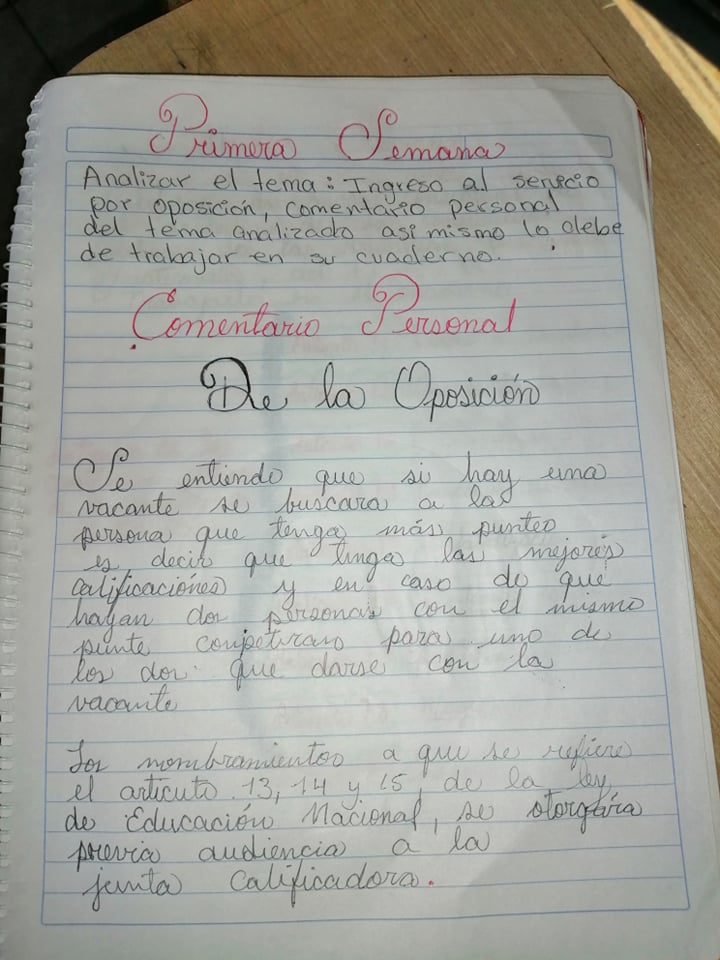 Primera Semana
Analizar el tema: Ingreso al servicio
por oposición, comentario personal
del tema analizado asi mismo lo debe
de trabajar en su cuaderno.
Comentario Personal
De la Oposición
Se entiendo que si hay una
vacante se buscara a las
persona que tenga más punteo
es decir que tenga las mejores
calificaciones y en caso de que
hayan dos personas con el mismo
punte competiran para uno de
los dos que darse con la
vacante
Los nombramientos a que se refiere
el articuto 13, 14 y 15, de la ley
de Educación Nacional, se otorgára
previa audiencia a la
junta calificadora.